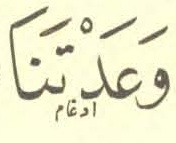 وَعَدْتَنَا
ادغام